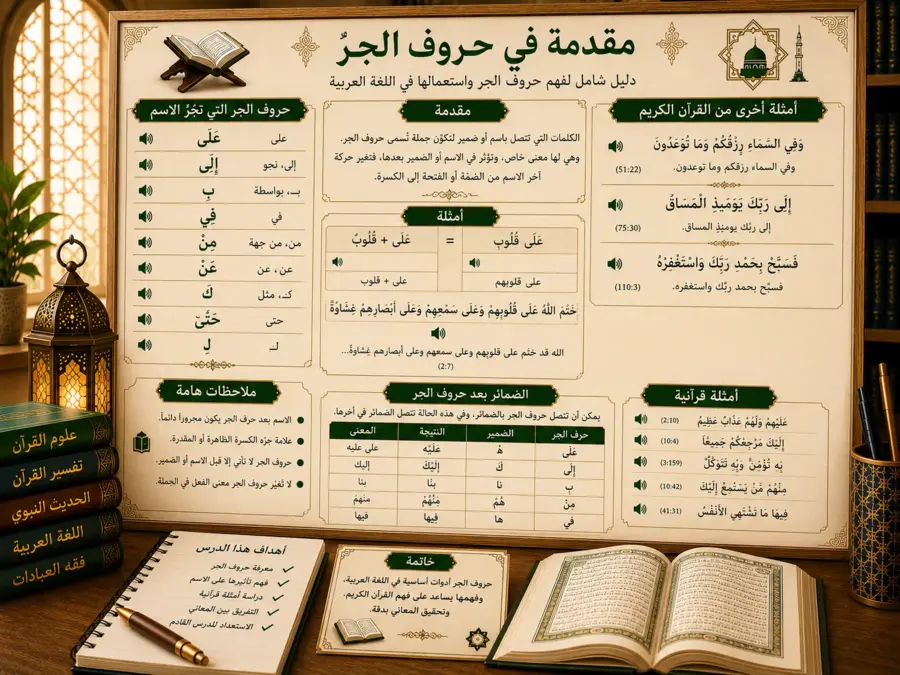 مقدمة في حروف الجرّ
دليل شامل لفهم حروف الجر واستعمالها في اللغة العربية
حروف الجر التي تجُرُ الاسم
عَلَى على
إِلَى إلى، نحو
بِ بـ، بواسطة
فِي في
مِنْ من، من جهة
عَنْ عن ، عن
كَ كـ، مثل
حَتَّىٰ حتى
لِ لـ
مقدمة
الكلمات التي تتصل باسم أو ضمير لتكوّن جملة تُسمى حروف الجر.
وهي لها معنى خاص، وتؤثر في الاسم أو الضمير بعدها، فتغير حركة
آخر الاسم من الضمّة أو الفتحة إلى الكسرة.
أمثلة
عَلَى قُلُوبٍ = عَلَى + قُلُوبٌ
على قلوبهم على + قلوب
خَتَمَ اللَّهُ عَلَى قُلُوبِهِمْ وَعَلَى سَمْعِهِمْ وَعَلَى أَبْصَارِهِمْ غِشَاوَةٌ
الله قد ختم على قلوبهم وعلى سمعهم وعلى أبصارهم غِشاوةٌ...
(2:7)
أمثلة أخرى من القرآن الكريم
وَفِي السَّمَاءِ رِزْقُكُمْ وَمَا تُوعَدُونَ
وفي السماء رزقكم وما توعدون.
(51:22)
إِلَى رَبِّكَ يَوْمَيِذِ الْمَسَاقُ
إلى ربّك يومئِذٍ المساق.
(75:30)
فَسَبَّحْ بِحَمْدِ رَبِّكَ وَاسْتَغْفِرْهُ
فسبِّح بحمد ربِّك واستغفره.
(110:3)
ملاحظات هامة
الاسم بعد حرف الجر يكون مجروراً دائماً.
علامة جرّه الكسرة الظاهرة أو المقدرة.
حروف الجر لا تأتي إلا قبل الاسم أو الضمير.
لا تُغيّر حروف الجر معنى الفعل في الجملة.
الضمائر بعد حروف الجر
يمكن أن تتصل حروف الجر بالضمائر، وفي هذه الحالة تتصل الضمائر في آخرها.
حرف الجر الضمير النتيجة المعنى
عَلَى هُ عَلَيْهِ على عليه
إِلَى كَ إِلَيْكَ إليك
بِ نا بِنَا بنا
مِنْ هُمْ مِنْهُمْ منهم
في ها فِيها فيها
أمثلة قرآنية
عَلَيْهِمْ وَلَهُمْ عَذَابٌ عَظِيمٌ (2:10)
إِلَيْكَ مَرْجِعُكُمْ جَمِيعًا (10:4)
بِهِ تُؤْمِنُ وَبِهِ تَتَوَكَّلُ (3:159)
مِنْهُمْ مَّنْ يَسْتَمِعُ إِلَيْكَ (10:42)
فِيهَا مَا تَشْتَهِي الْأَنْفُسُ (41:31)
علوم القرآن
تفسير القرآن
الحديث النبوي
اللغة العربية
فقه العبادات
أهداف هذا الدرس
معرفة حروف الجر
فهم تأثيرها على الاسم
دراسة أمثلة قرآنية
التفريق بين المعاني
الاستعداد للدرس القادم
خاتمة
حروف الجر أدوات أساسية في اللغة العربية،
وفهمها يساعد على فهم القرآن الكريم،
وتحقيق المعاني بدقة.